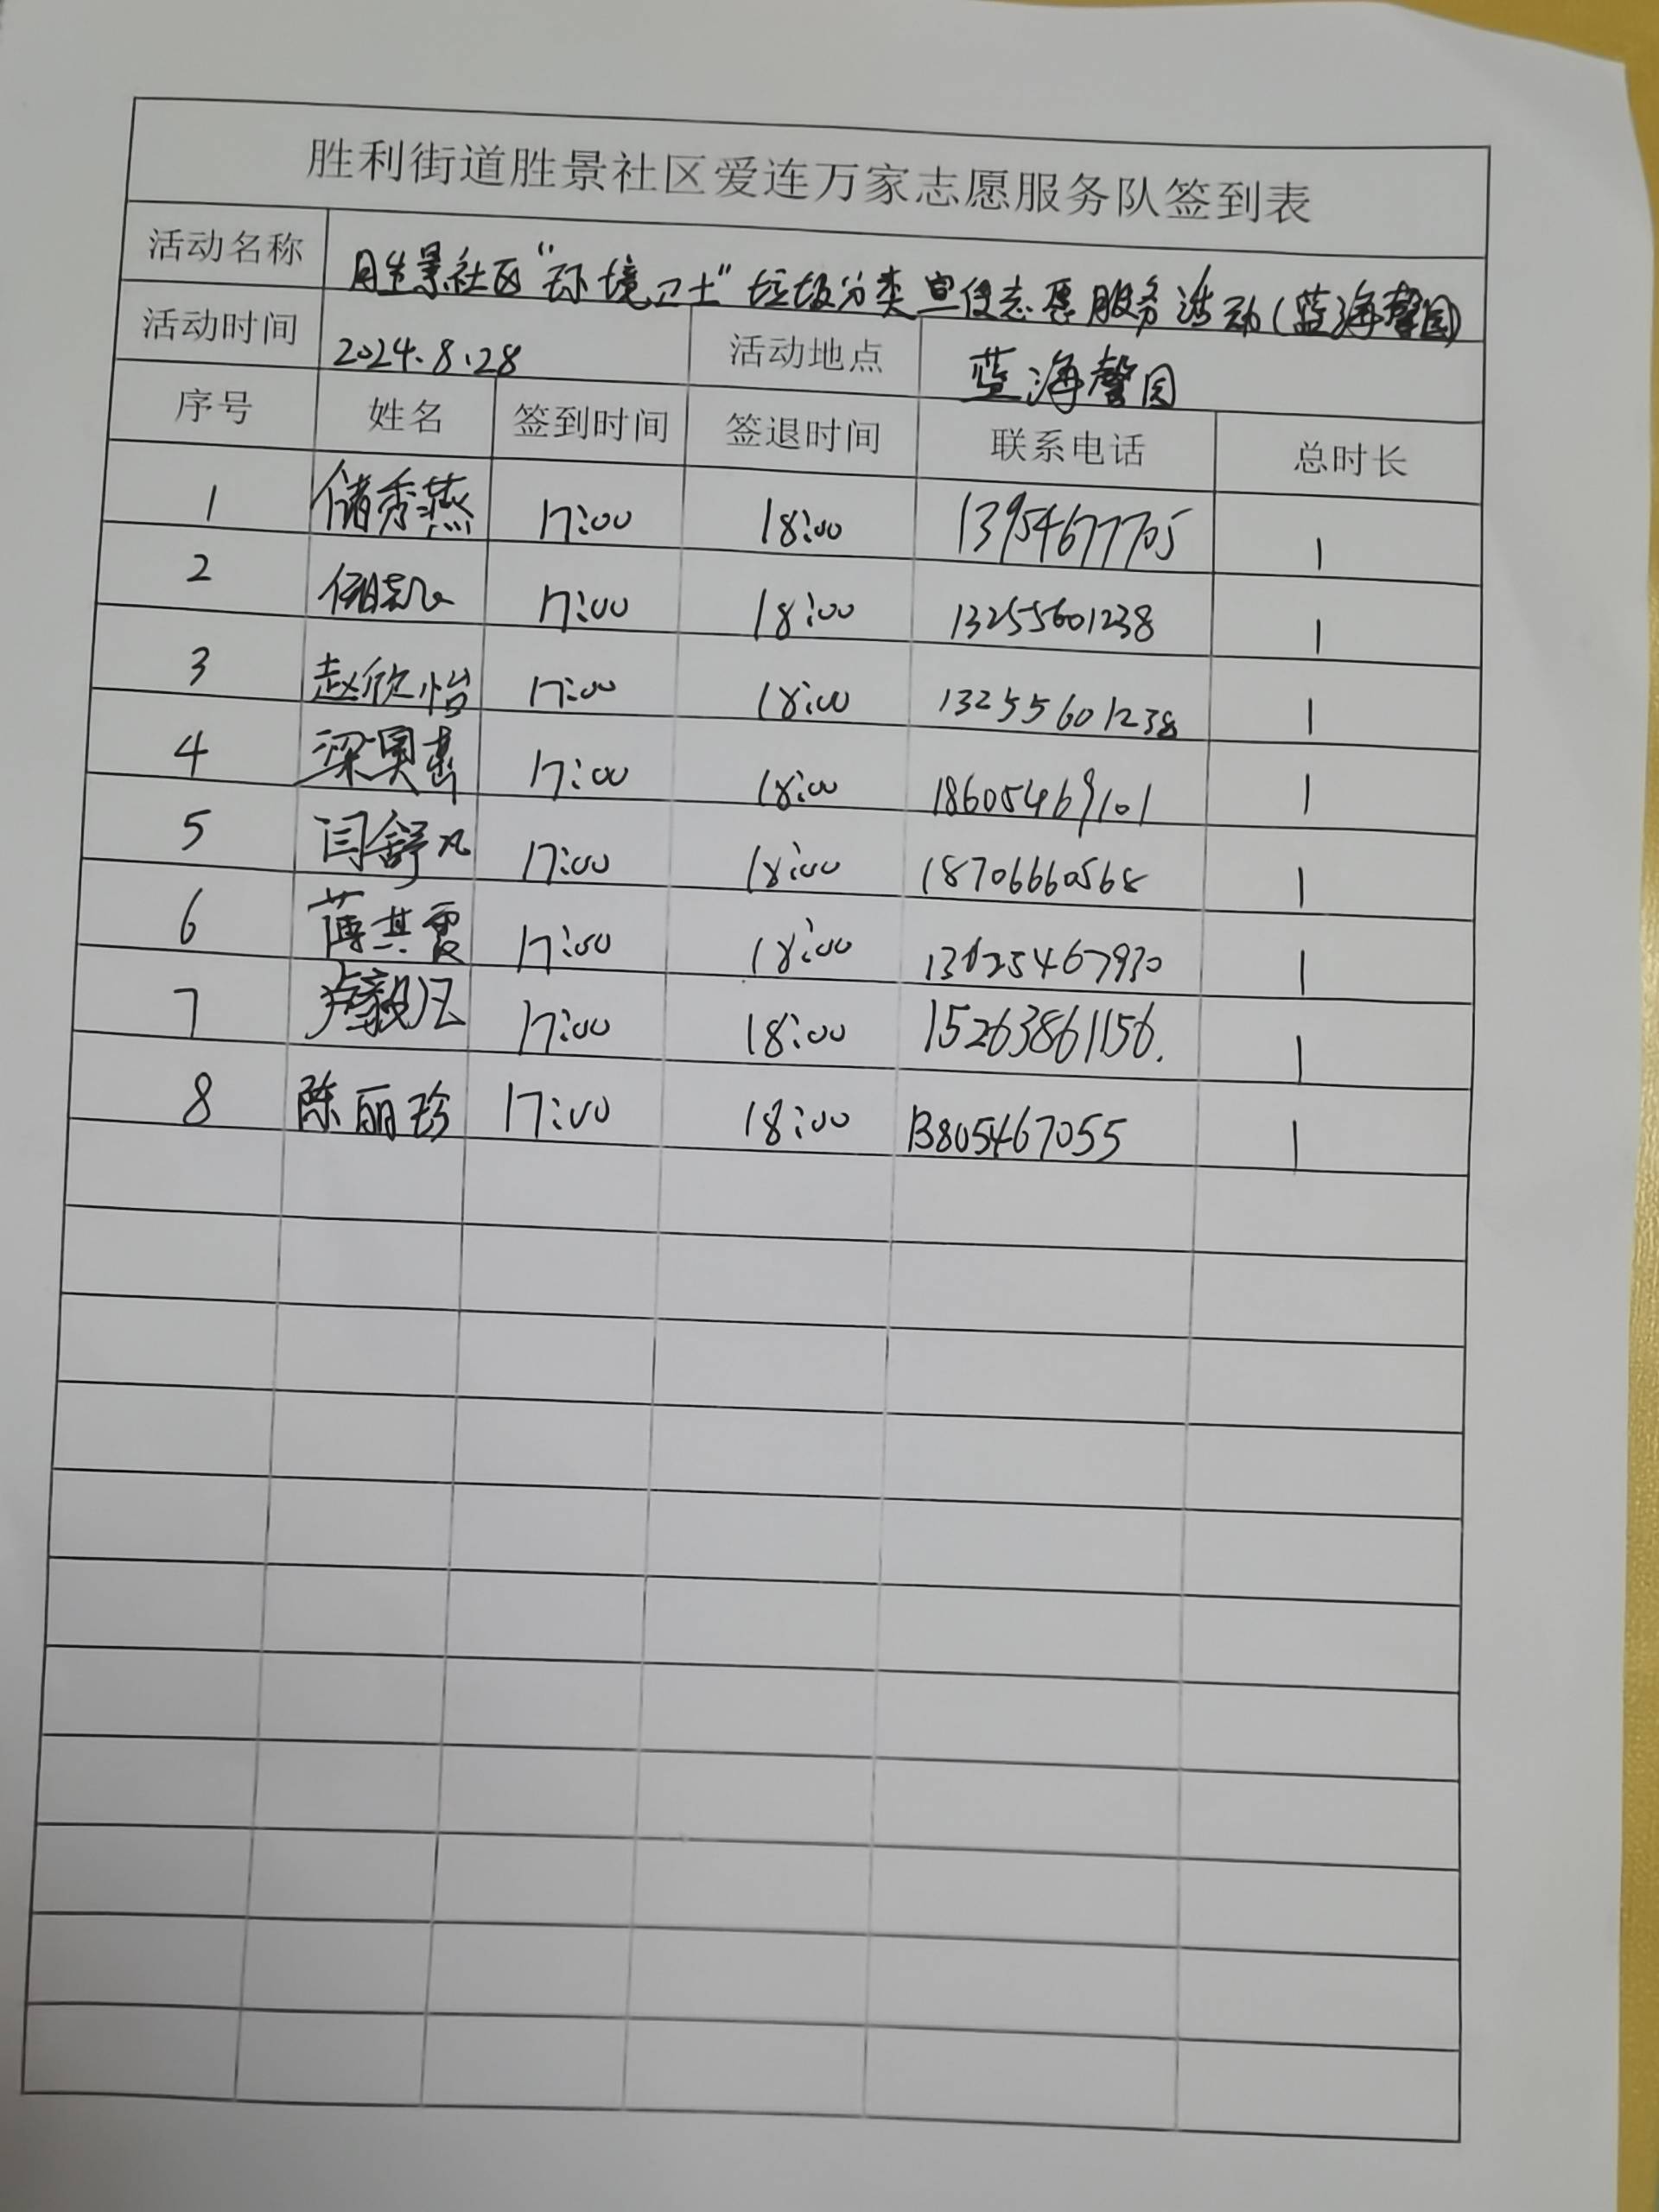 胜利街道胜景社区爱连万家志愿服务队签到表
活动名称 胜景社区“环境卫士”垃圾分类宣传志愿服务活动(蓝海馨园)
活动时间 2024.8.28 活动地点 蓝海馨园
序号 姓名 签到时间 签退时间 联系电话 总时长
1 储秀燕 17:00 18:00 13954677705 1
2 17:00 18:00 13255601238 1
3 赵欣怡 17:00 18:00 13255601238 1
4 17:00 18:00 18605469101 1
5 闫舒凡 17:00 18:00 18706660568 1
6 薄其霞 17:00 18:00 1 
7 17:00 18:00 15263861156. 1
8 陈丽珍 17:00 18:00 13805467055 1